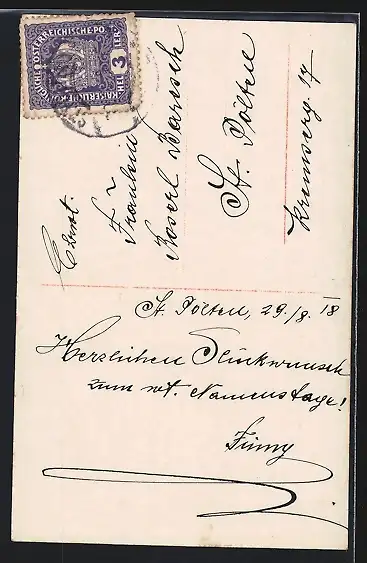 KAISERLICHE KÖNIGLICHE ÖSTERREICHISCHE POST
3
HELLER
Fräulein
Roserl Barisch
St. Pölten
Kremserg. 17
St. Pölten, 29./8. 18
Herzlichen Glückwunsch
zum w. Namenstage!
Finny